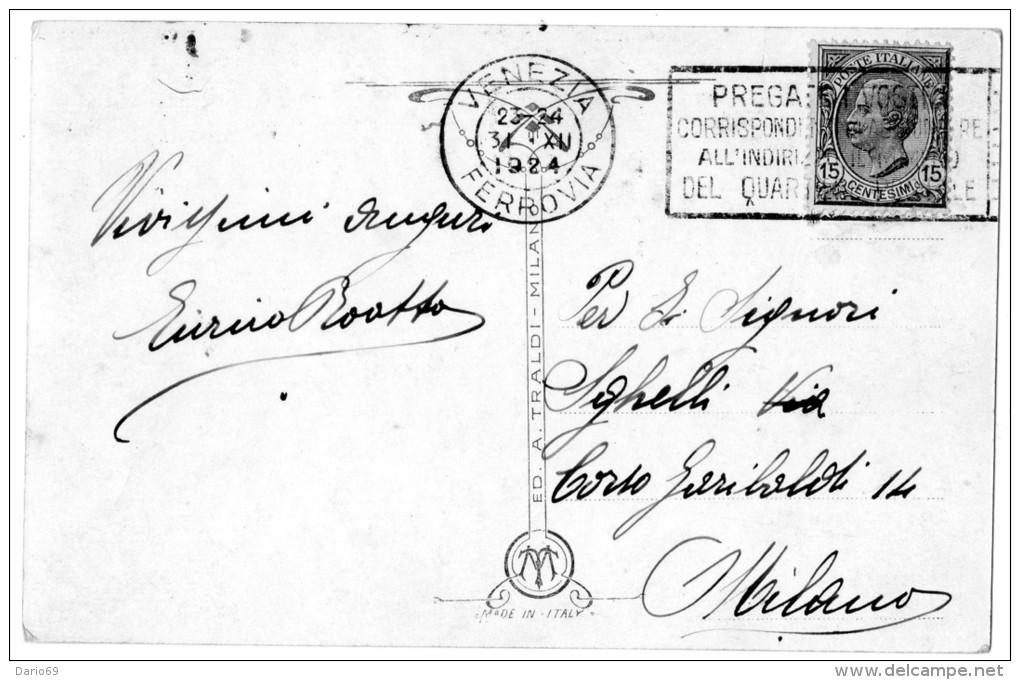 VENEZIA
23-24
31 XII
1924
FERROVIA
POSTE ITALIANE
15 15
CENTESIMI
PREGA VOST
CORRISPOND RE
ALL'INDIRI
DEL QUAR LE
Vivissimi auguri
Enrico Rootta
ED. A. TRALDI - MILANO
Per Signori
Sghelli Via
Corso Garibaldi 14
Milano
MADE IN ITALY
Dario69
www.delcampe.net